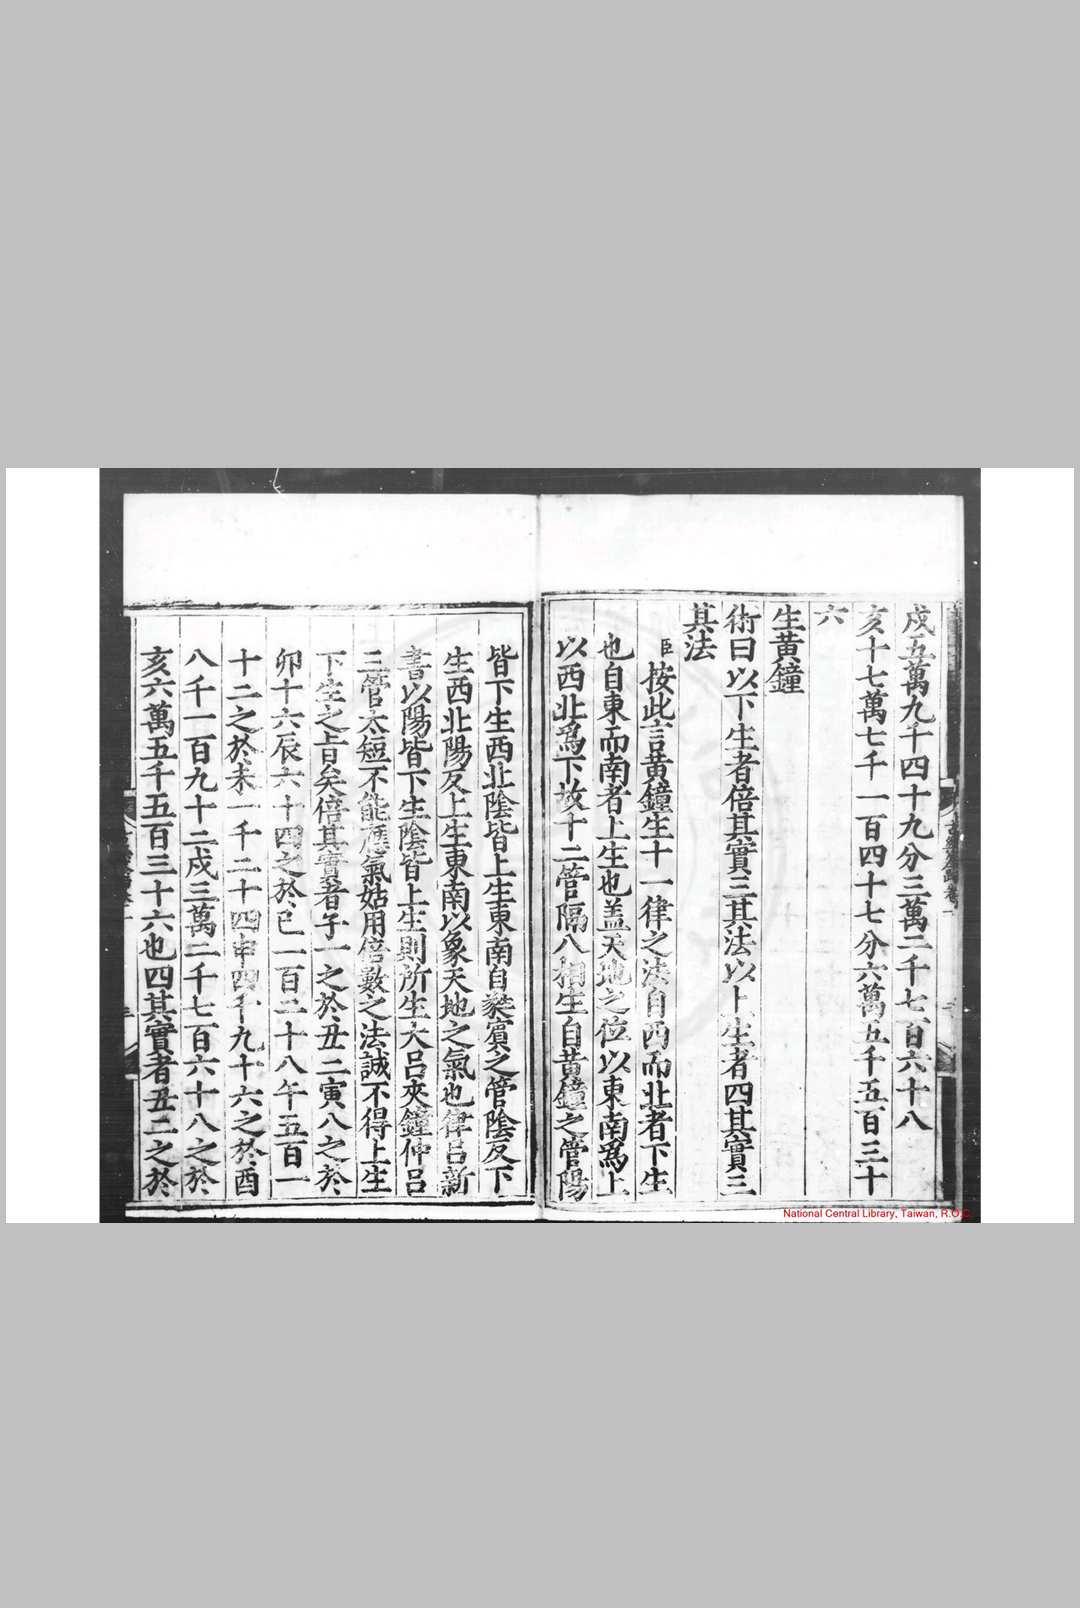 戌五萬九千四十九分三萬二千七百六十八
亥十七萬七千一百四十七分六萬五千五百三十
六
生黃鐘
術曰以下生者倍其實三其法以上生者四其實三
其法
臣按此言黃鐘生十一律之法自西而北者下生
也自東而南者上生也盖天地之位以東南爲上
以西北爲下故十二管隔八相生自黃鐘之管陽
皆下生西北陰皆上生東南自蕤賓之管陰反下
生西北陽反上生東南以象天地之氣也律呂新
書以陽皆下生陰皆上生則所生大呂夾鐘仲呂
三管太短不能應氣姑用倍數之法誠不得上生
下生之旨矣倍其實者子一之於丑二寅八之於
卯十六辰六十四之於巳一百二十八午五百一
十二之於未一千二十四申四千九十六之於酉
八千一百九十二戌三萬二千七百六十八之於
亥六萬五千五百三十六也四其實者丑二之於
National Central Library, Taiwan, R.O.C.